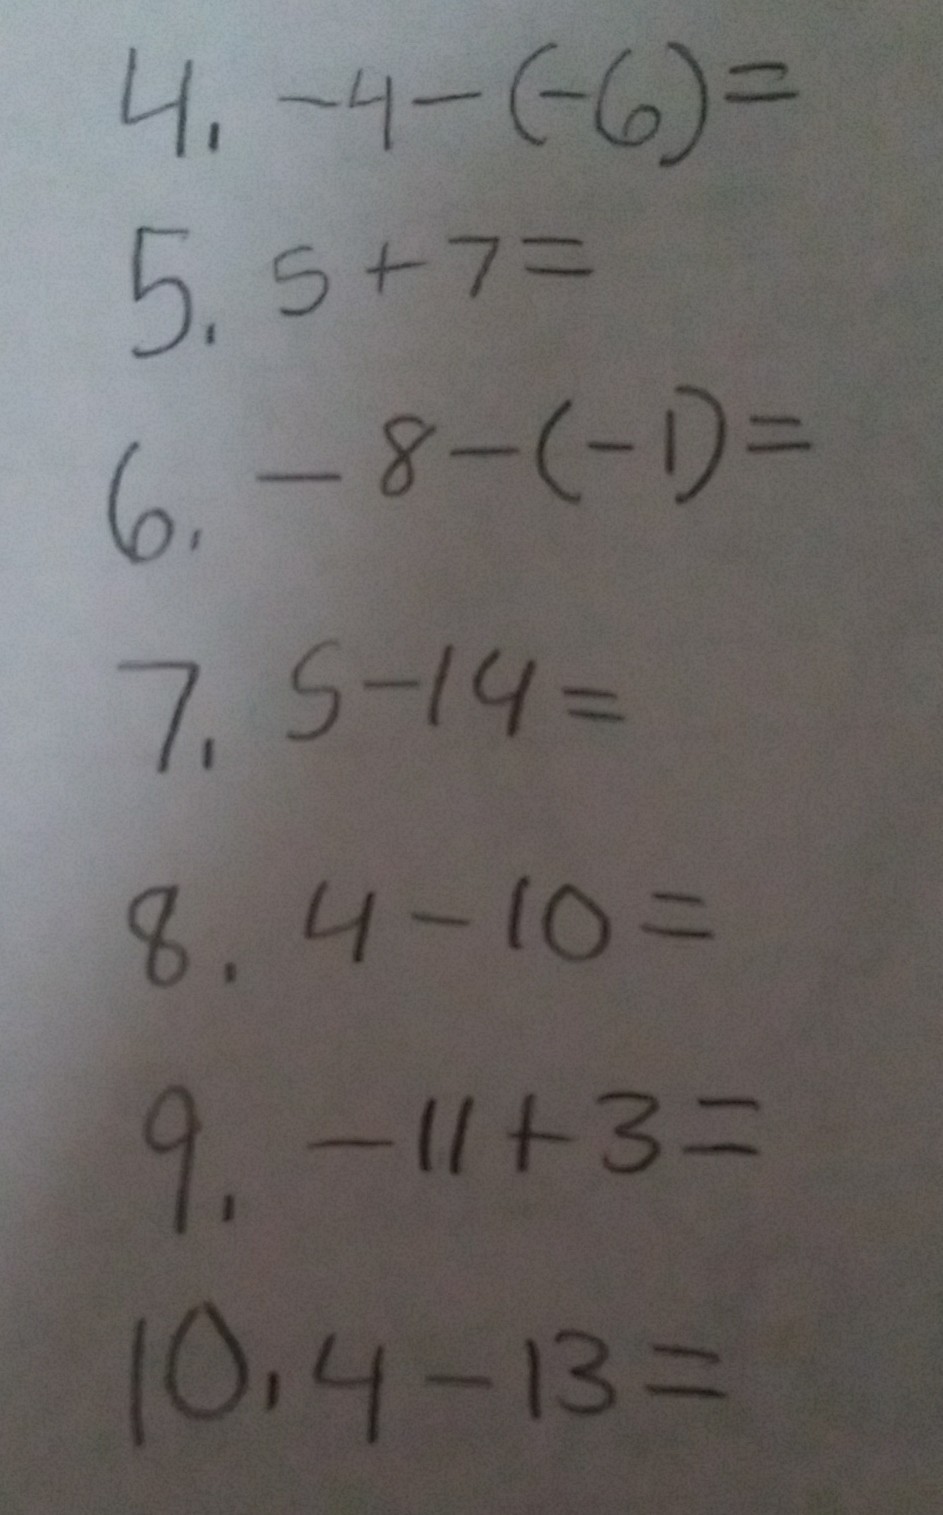 4. -4-(-6)=
5. 5+7=
6. -8-(-1)=
7. 5-14=
8. 4-10=
9. -11+3=
10. 4-13=